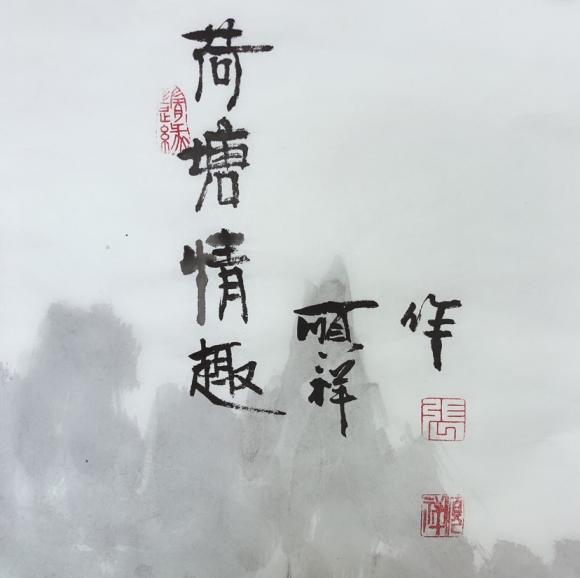 荷塘情趣
顺祥
作
張